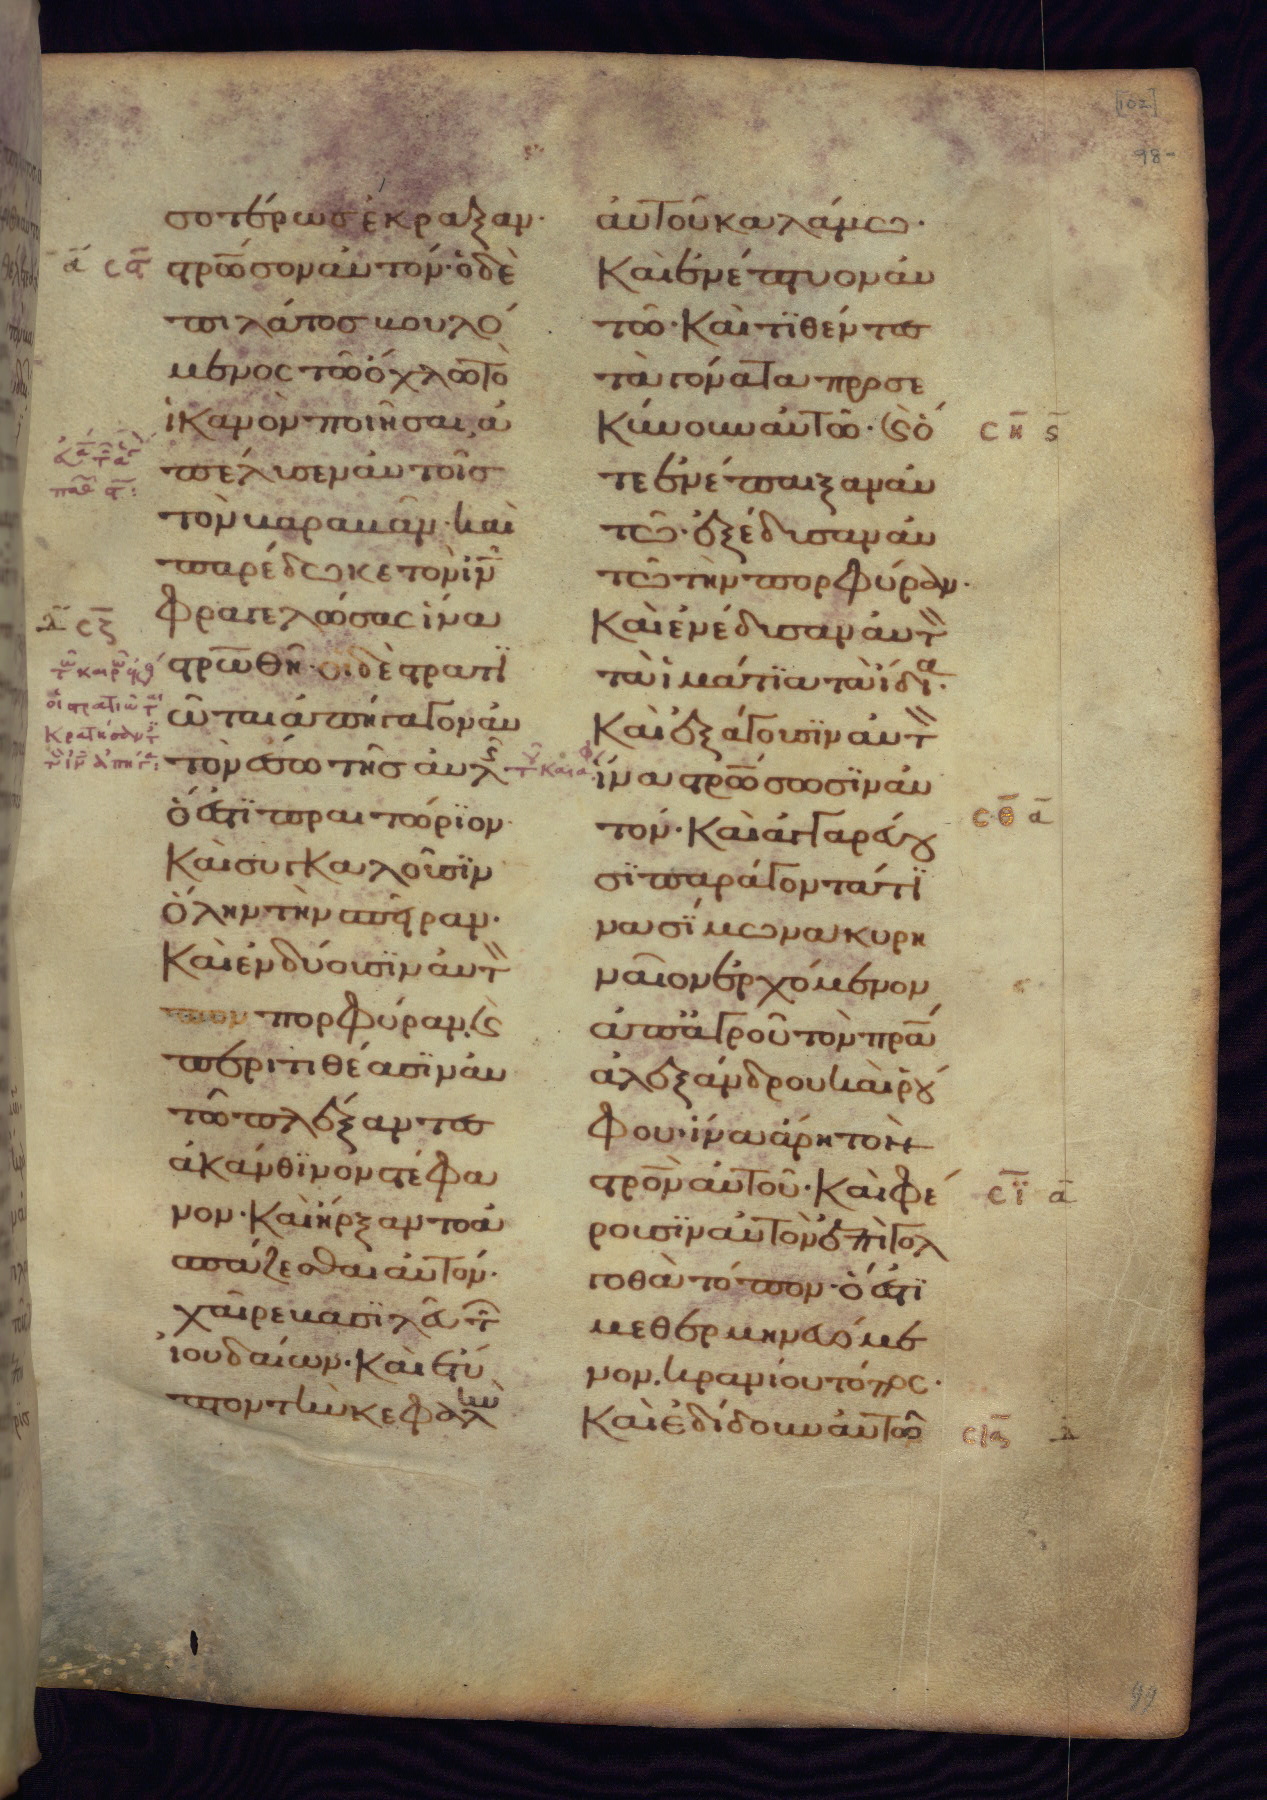 [102]
98-
σοτέρως ἐκραξαν·
στρωσον αὐτόν· ὁ δὲ
πιλάτος βουλό
μενος τῶ ὄχλω τὸ
ἱκανὸν ποιῆσαι, ἀ
πέλυσεν αὐτοῖς
τὸν βαραββᾶν· καὶ
παρέδωκε τὸν ιν
φραγελώσας ἵνα
στρωθῆ· οἱ δὲ στρατϊ
ῶται ἀπήγαγον αὐ
τὸν ἔσω τῆς αὐλς
ὅ ἐστϊ πραιτώρϊον·
καὶ συγκαλοῦσϊν
ὅλην τὴν σπεῖραν·
καὶ ἐνδύουσϊν αὐτ
πορφύραν, καὶ
περιτιθέασϊν αὐ
τῶ πλέξαντες
ἀκάνθϊνον στέφα
νον· καὶ ἤρξαντο ἀ
σπάζεσθαι αὐτόν·
χαῖρε βασϊλεῦ τ
ἰουδαίων· καὶ ἔτύ
πτον τὴν κεφαλὴν
αὐτοῦ καλάμω·
καὶ ἐνέπτυον αὐ
τῶ· καὶ τϊθέντες
τὰ γόνατα προσε
κύνουν αὐτῶ· καὶ ὅ
τε ἐνέπαιξαν αὐ
τῶ· ἐξέδυσαν αὐ
τῶ τὴν πορφύραν·
καὶ ἐνέδυσαν αὐτ
τὰ ἱμάτϊα τὰ ἰδϊα·
καὶ ἐξάγουσϊν αὐτ
ἵνα στρωσωσϊν αὐ
τόν· καὶ ἀγγαρεύου
σϊ παράγοντά τϊ
να σϊμωνα κυρη
ναῖον ἐρχόμενον
ἀπ' ἀγροῦ τὸν πρα
ἀλεξάνδρου καὶ ῥού
φου· ἵνα ἄρη τὸν
στρον αὐτοῦ· καὶ φέ
ρουσϊν αὐτὸν ἐπὶ γολ
γοθὰ τόπον· ὅ ἐστϊ
μεθερμηνευόμε
νον, κρανίου τόπος·
καὶ ἐδίδουν αὐτῶ
99